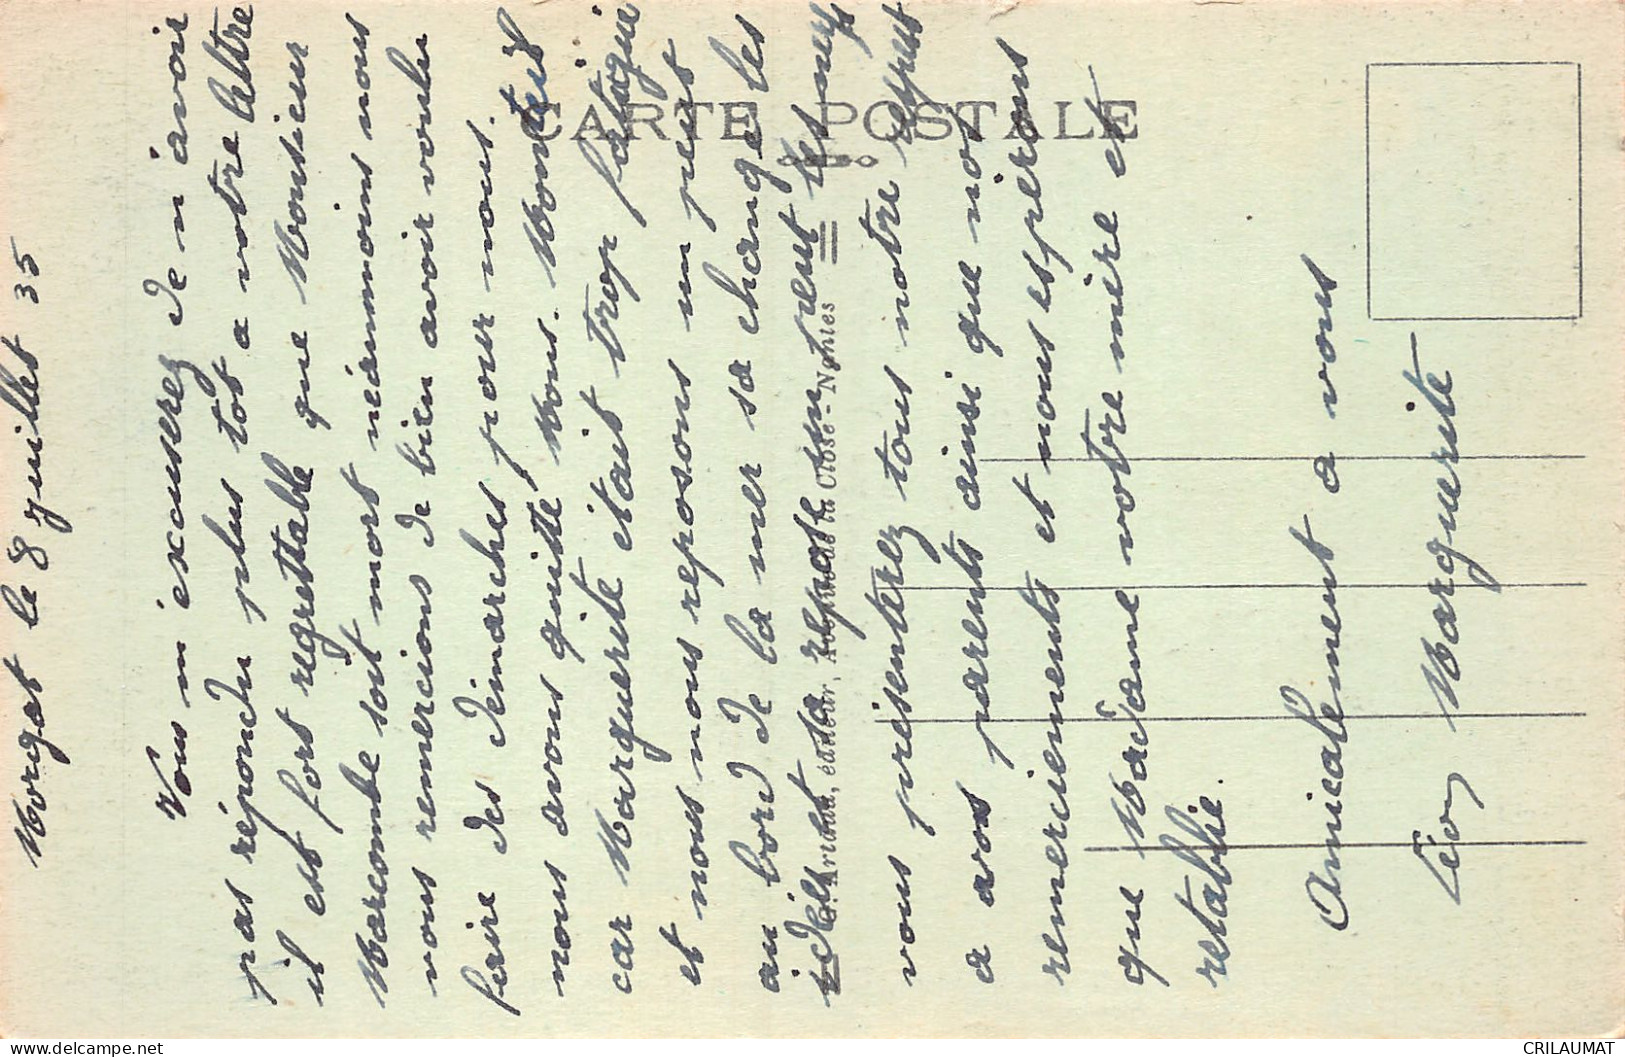 Morgat le 8 juillet 35
Vous m'excuserez de n'avoir
pas répondu plus tot a votre lettre
il est fort regrettable que Monsieur
Marcombe soit mort néanmoins nous
vous remercions de bien avoir voulu
faire des démarches pour nous.
nous avons quitté Mous. Monteil
car Marguerite était trop fatiguée
et nous nous reposons un peut
au bord de la mer sa change les
idéés et sa repose un peut les nerfs
vous présenterez tous notre respect
a vos parents ainsi que nos
remerciements et nous esperons
que Madame votre mère et
retablie.
Amicalement a vous
Léon Marguerite
CARTE POSTALE
G. Artaud, éditeur, de la Close - Nantes
CRILAUMAT